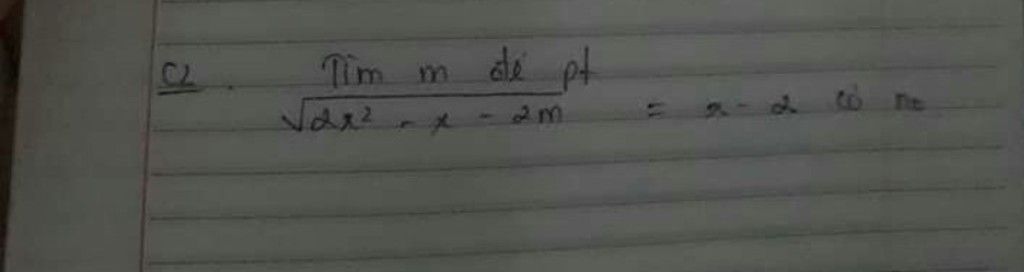 C2. Tìm m để pt
√2x² - x - 2m = x - 2 có no